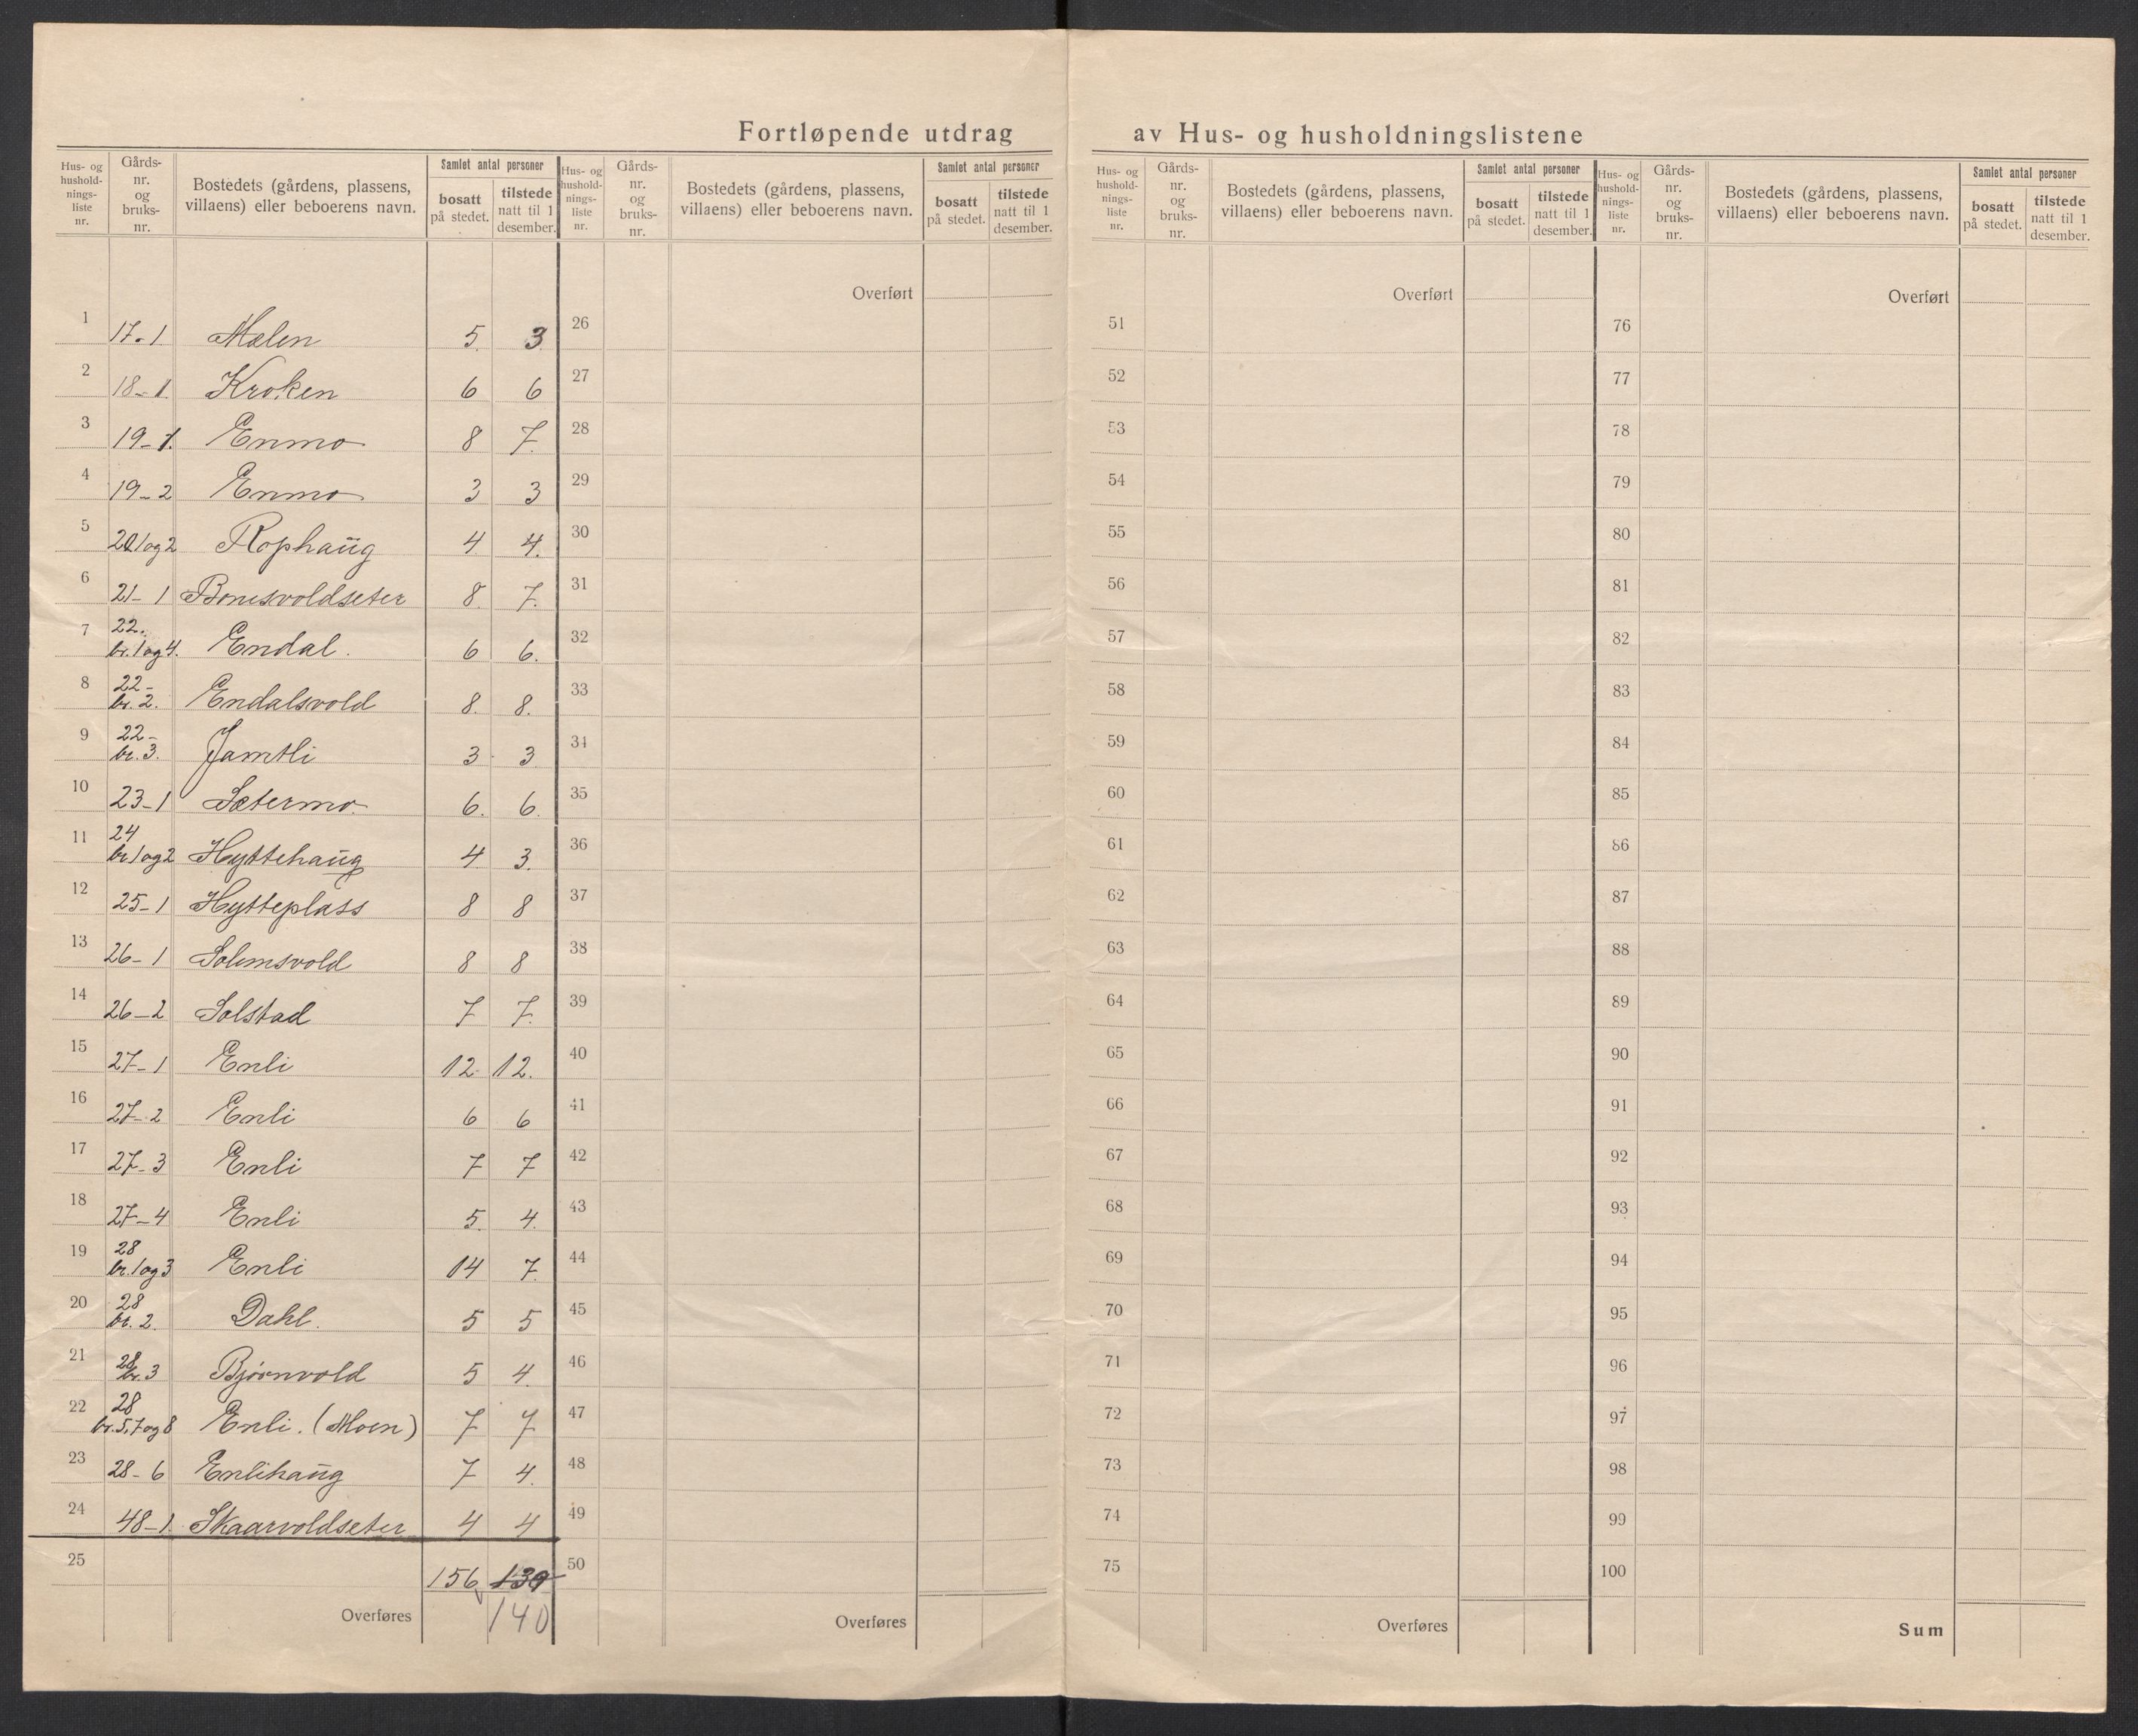 Fortløpende utdrag av Hus- og husholdningslistene
Hus- og husholdnings-liste nr. | Gårds-nr. og bruks-nr. | Bostedets (gårdens, plassens, villaens) eller beboerens navn. | Samlet antal personer | bosatt på stedet. | tilstede natt til 1 desember.
1 17-1 Mælen 5 3
2 18-1 Kroken 6 6
3 19-1. Enmo 8 7.
4 19-2 Enmo 3 3
5 20 1og2 Rophaug 4 4.
6 21-1 Bonesvoldseter 8. 7.
7 22. br. 1 og 4. Endal. 6 6.
8 22- br. 2. Endalsvold 8. 8.
9 22- br. 3. Jamtli 3 3
10 23-1 Sætermo. 6. 6.
11 24 br 1 og 2 Hyttehaug 4. 3.
12 25-1 Hytteplass 8 8
13 26-1 Solemsvold 8 8
14 26-2 Solstad 7 7.
15 27-1 Enli 12 12.
16 27-2 Enli 6 6
17 27-3 Enli 7 7
18 27-4 Enli 5. 4.
19 28 br. 1 og 3 Enli 14 7.
20 28 br. 2. Dahl. 5 5
21 28 br. 3 Bjørnvold 5 4.
22 28 br. 5,7 og 8 Enli. (Moen) 7 7
23 28-6 Enlihaug 7 4.
24 48-1 Skaarvoldseter 4 4
25 156 139
Overføres 140
Hus- og husholdnings-liste nr. | Gårds-nr. og bruks-nr. | Bostedets (gårdens, plassens, villaens) eller beboerens navn. | Samlet antal personer | bosatt på stedet. | tilstede natt til 1 desember.
Overført
26
27
28
29
30
31
32
33
34
35
36
37
38
39
40
41
42
43
44
45
46
47
48
49
50
Overføres
Hus- og husholdnings-liste nr. | Gårds-nr. og bruks-nr. | Bostedets (gårdens, plassens, villaens) eller beboerens navn. | Samlet antal personer | bosatt på stedet. | tilstede natt til 1 desember.
Overført
51
52
53
54
55
56
57
58
59
60
61
62
63
64
65
66
67
68
69
70
71
72
73
74
75
Overføres
Hus- og husholdnings-liste nr. | Gårds-nr. og bruks-nr. | Bostedets (gårdens, plassens, villaens) eller beboerens navn. | Samlet antal personer | bosatt på stedet. | tilstede natt til 1 desember.
Overført
76
77
78
79
80
81
82
83
84
85
86
87
88
89
90
91
92
93
94
95
96
97
98
99
100
Sum